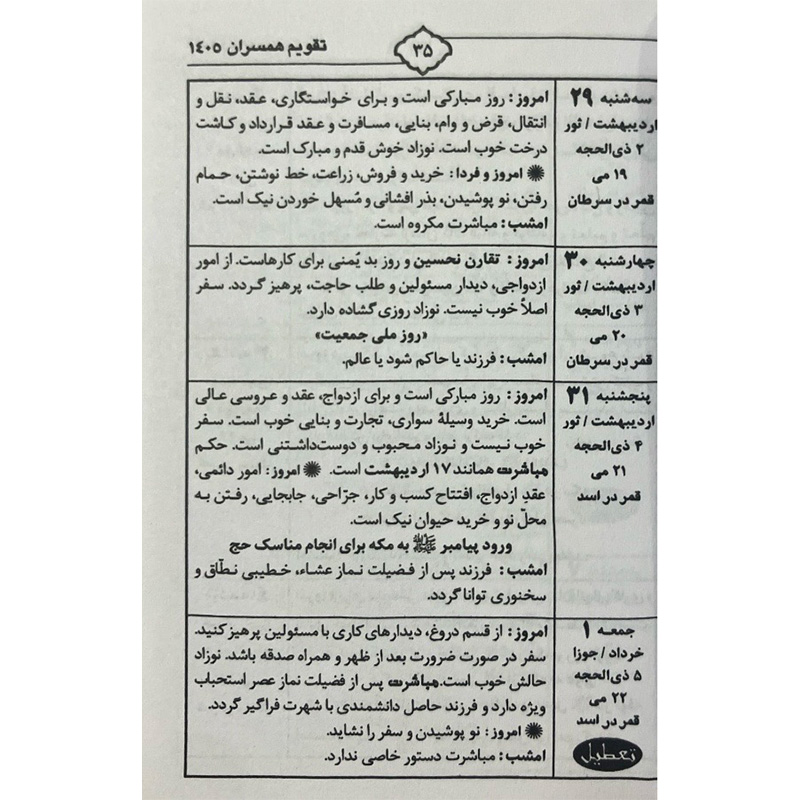 تقویم همسران ۱۴۰۵
۳۵
سه‌شنبه ۲۹
اردیبهشت / ثور
۲ ذی‌الحجه
۱۹ می
قمر در سرطان
امروز: روز مبارکی است و برای خواستگاری، عقد، نقل و
انتقال، قرض و وام، بنایی، مسافرت و عقد قرارداد و کاشت
درخت خوب است. نوزاد خوش قدم و مبارک است.
✺ امروز و فردا: خرید و فروش، زراعت، خط نوشتن، حمام
رفتن، نو پوشیدن، بذر افشانی و مُسهل خوردن نیک است.
امشب: مباشرت مکروه است.
چهارشنبه ۳۰
اردیبهشت / ثور
۳ ذی‌الحجه
۲۰ می
قمر در سرطان
امروز: تقارن نحسین و روز بد یُمنی برای کارهاست. از امور
ازدواجی، دیدار مسئولین و طلب حاجت، پرهیز گردد. سفر
اصلاً خوب نیست. نوزاد روزی گشاده دارد.
«روز ملی جمعیت»
امشب: فرزند یا حاکم شود یا عالم.
پنجشنبه ۳۱
اردیبهشت / ثور
۴ ذی‌الحجه
۲۱ می
قمر در اسد
امروز: روز مبارکی است و برای ازدواج، عقد و عروسی عالی
است. خرید وسیلهٔ سواری، تجارت و بنایی خوب است. سفر
خوب نیست و نوزاد محبوب و دوست‌داشتنی است. حکم
مباشرت همانند ۱۷ اردیبهشت است. ✺ امروز: امور دائمی،
عقدِ ازدواج، افتتاح کسب و کار، جرّاحی، جابجایی، رفتن به
محلّ نو و خرید حیوان نیک است.
ورود پیامبر ﷺ به مکه برای انجام مناسک حج
امشب: فرزند پس از فضیلت نماز عشاء، خطیبی نطّاق و
سخنوری توانا گردد.
جمعه ۱
خرداد / جوزا
۵ ذی‌الحجه
۲۲ می
قمر در اسد
تعطیل
امروز: از قسم دروغ، دیدارهای کاری با مسئولین پرهیز کنید.
سفر در صورت ضرورت بعد از ظهر و همراه صدقه باشد. نوزاد
حالش خوب است. مباشرت پس از فضیلت نماز عصر استحباب
ویژه دارد و فرزند حاصل دانشمندی با شهرت فراگیر گردد.
✺ امروز: نو پوشیدن و سفر را نشاید.
امشب: مباشرت دستور خاصی ندارد.